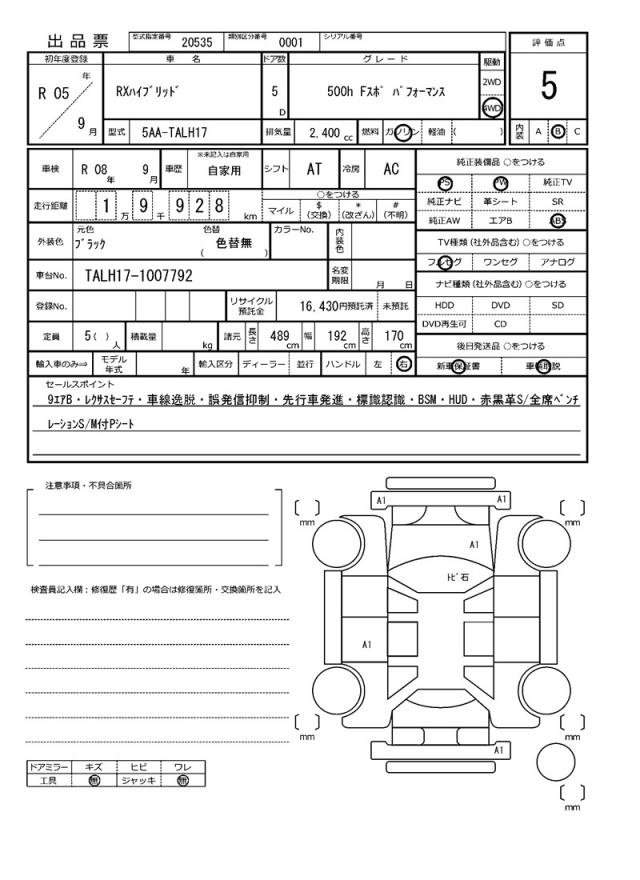 出品票 型式指定番号 20535 類別区分番号 0001 シリアル番号
評価点
5
初年度登録 車名 ドア数 グレード 駆動
R 05 年 9 月 RXハイブリッド 5 D 500h Fスポ パフォーマンス 2WD 4WD
型式 5AA-TALH17 排気量 2,400 cc 燃料 ガソリン 軽油 ( )
内装 A B C
車検 R 08 年 9 月 車歴 ※未記入は自家用 自家用 シフト AT 冷房 AC
走行距離 1 万 9 千 9 2 8 km ○をつける マイル $ (交換) * (改ざん) # (不明)
外装色 元色 ブラック 色替 色替無 ( ) カラーNo. 内装色
車台No. TALH17-1007792 名変期限 月 日
登録No. リサイクル預託金 16,430円預託済 未預託
定員 5 ( ) 人 積載量 kg 諸元 長さ 489 cm 幅 192 cm 高さ 170 cm
輸入車のみ⇒ モデル年式 年 輸入区分 ディーラー 並行 ハンドル 左 右
純正装備品 ○をつける
PS PW 純正TV
純正ナビ 革シート SR
純正AW エアB ABS
TV種類 (社外品含む) ○をつける
フルセグ ワンセグ アナログ
ナビ種類 (社外品含む) ○をつける
HDD DVD SD
DVD再生可 CD
後日発送品 ○をつける
新車保証書 車輌取説
セールスポイント
9エアB・レクサスセーフテ・車線逸脱・誤発信抑制・先行車発進・標識認識・BSM・HUD・赤黒革S/全席ベンチ
レーションS/M付Pシート
注意事項・不具合箇所
検査員記入欄：修復歴「有」の場合は修復箇所・交換箇所を記入
ドアミラー キズ ヒビ ワレ
工具 無 ジャッキ 無
A1 A1
mm mm
A1
トビ石
A1
mm mm
A1
mm